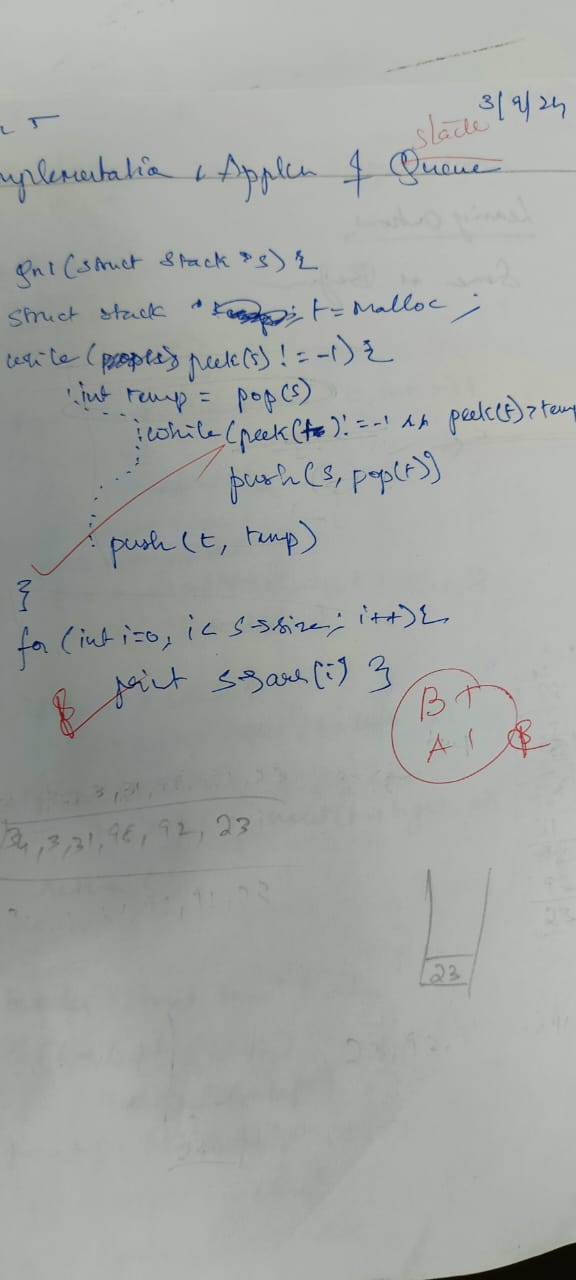 3/9/24
stack
mplementation & Applcn of Queue
gn1 (struct stack *s) {
struct stack * t = malloc ;
while ( peek(s) != -1) {
int temp = pop(s)
while (peek(t) != -1 && peek(t) > temp
push (s, pop(t))
push (t, temp)
}
for (int i=0; i< s->size; i++) {
print s->arr[i] }
B+
A1
34, 3, 31, 98, 92, 23
23